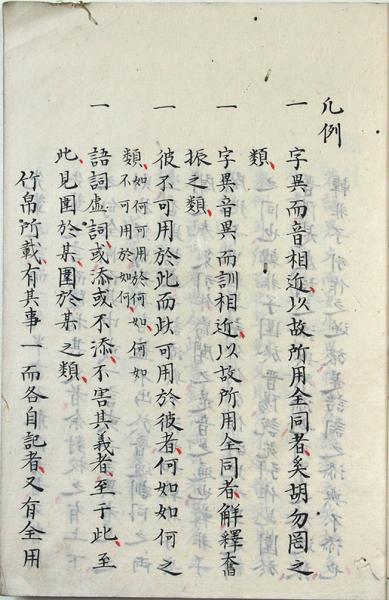 凡例
一 字異而音相近以故所用全同者奚胡勿罔之
類
一 字異音異而訓相近以故所用全同者解釋奮
振之類
一 彼不可用於此而此可用於彼者何如如何之
類如何可用於何如何如
不可用於如何
一 語詞虛詞或添或不添不害其義者至于此至
此見圍於某圍於某之類
竹帛所載有其事一而各自記者又有全用